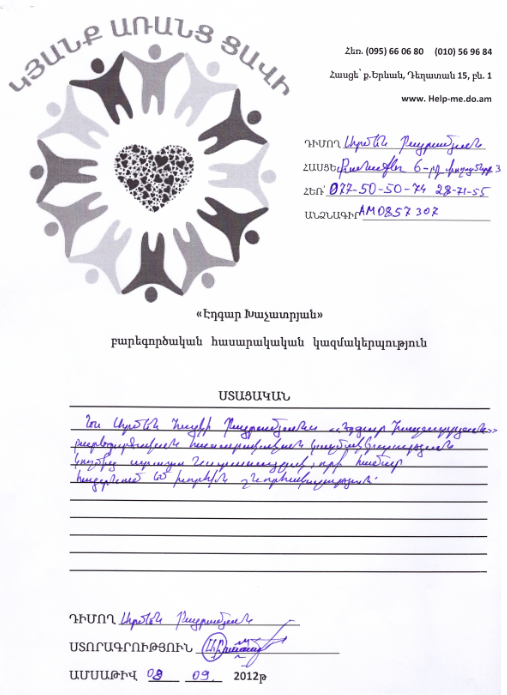 ԿՅԱՆՔ ԱՌԱՆՑ ՑԱՎԻ
Հեռ. (095) 66 06 80 (010) 56 96 84
Հասցե՝ ք.Երևան, Դեղատան 15, բն. 1
www. Help-me.do.am
ԴԻՄՈՂ Արմեն
ՀԱՍՑԵ 6-րդ 3
ՀԵՌ՝ 077-50-50-74 28-71-55
ԱՆՁՆԱԳԻՐ AM0857307
«Էդգար Խաչատրյան»
բարեգործական հասարակական կազմակերպություն
ՍՏԱՑԱԿԱՆ
Ես Արմեն «Էդգար Խաչատրյան»
բարեգործական հասարակական կազմակերպության
կողմից որի համար
հայտնում եմ խորին շնորհակալություն
ԴԻՄՈՂ Արմեն
ՍՏՈՐԱԳՐՈՒԹՅՈՒՆ
ԱՄՍԱԹԻՎ 03 09. 2012թ